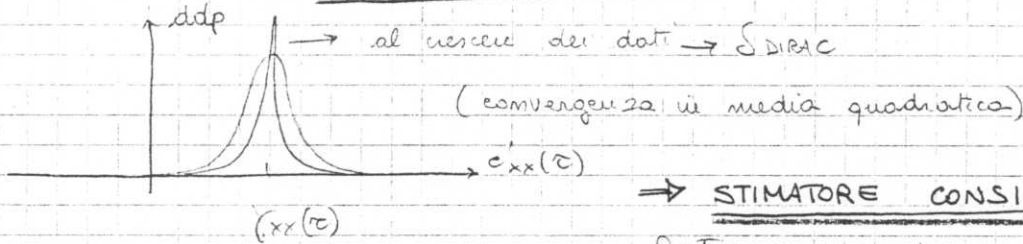 ddp
→ al crescere dei dati → δ DIRAC
(convergenza in media quadratica)
c'xx(τ)
⇒ STIMATORE CONSI
Cxx(τ)